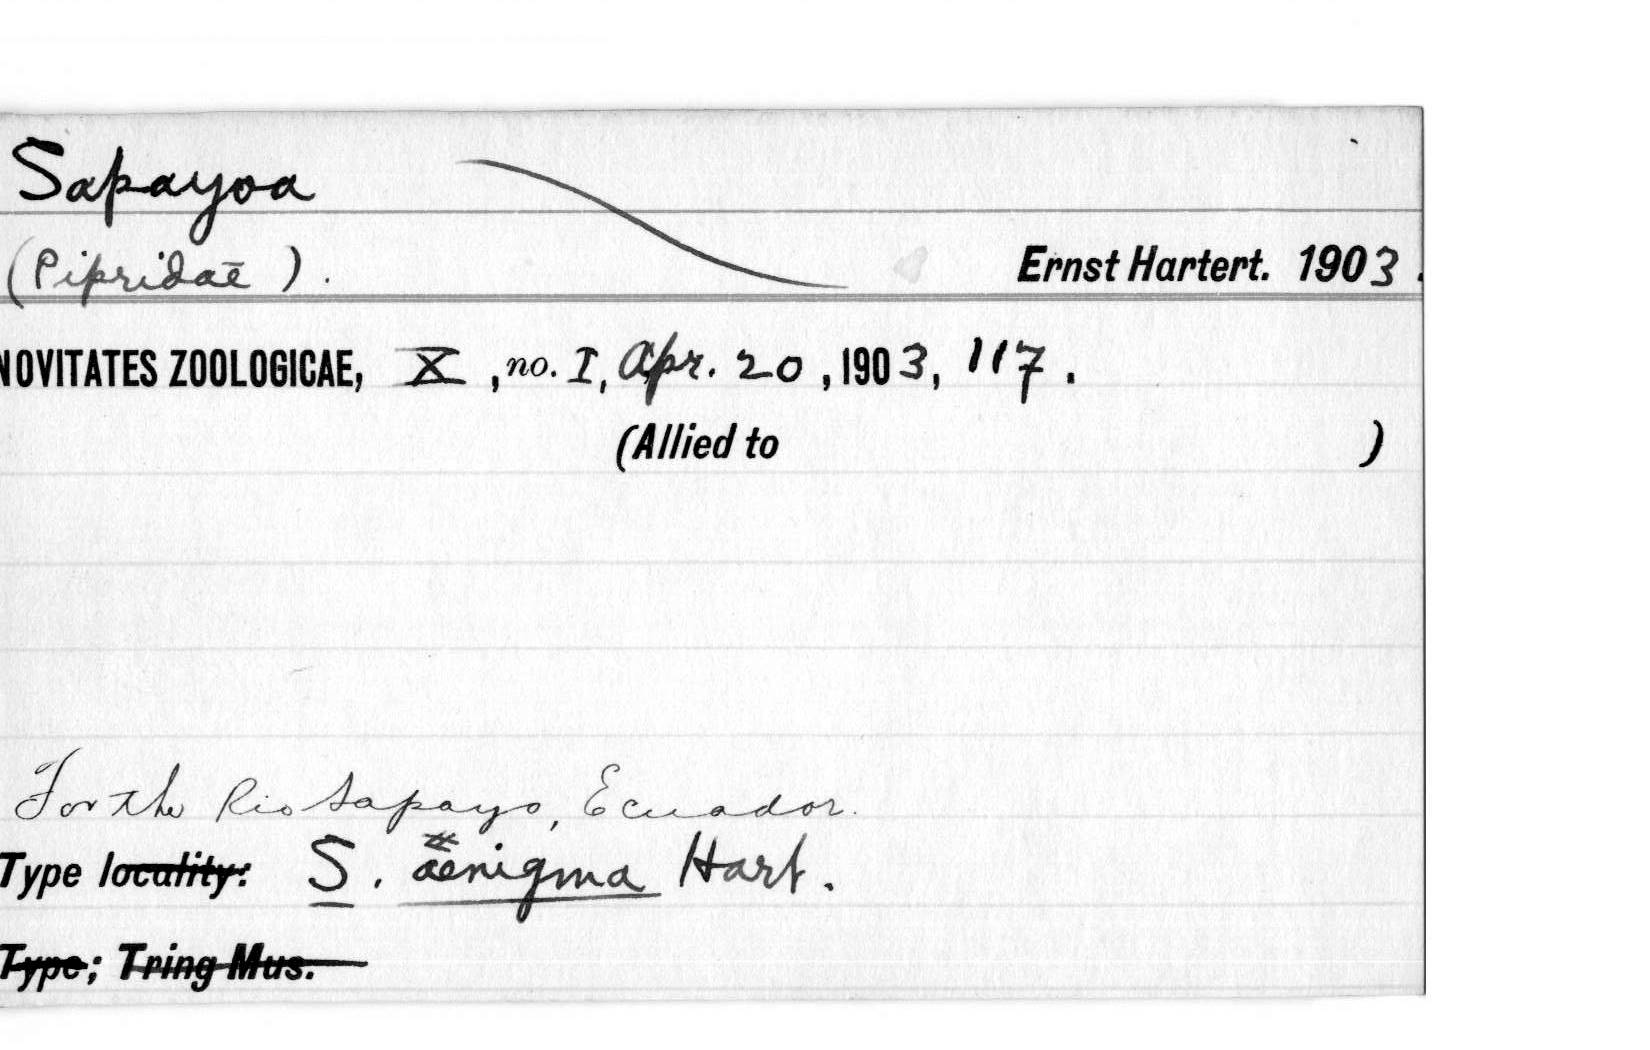 Sapayoa
(Pipridae).
Ernst Hartert. 1903.
NOVITATES ZOOLOGICAE, X, no. I, Apr. 20, 1903, 117.
(Allied to )
For the Rio Sapayo, Ecuador.
Type locality: S. aenigma Hart.
Type; Tring Mus.